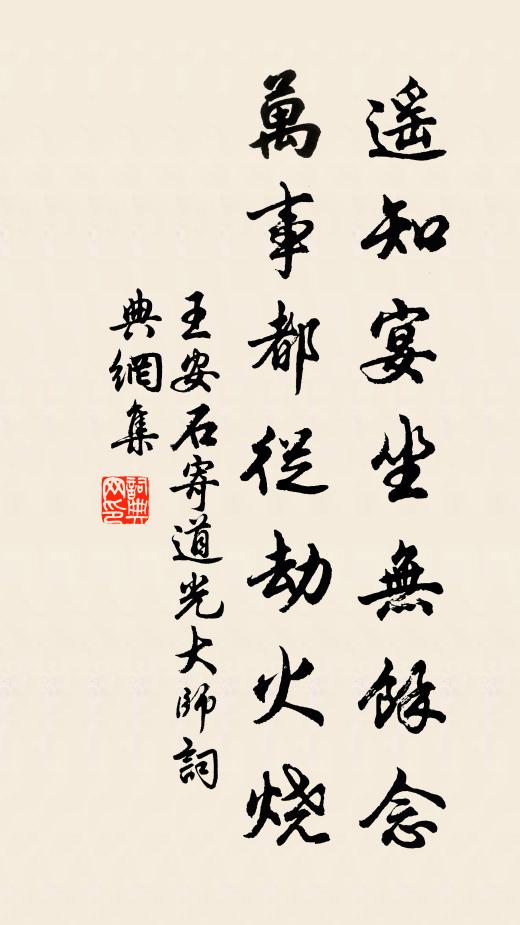 遥知宴坐無餘念
萬事都從劫火燒
王安石寄道光大師詞
典網集
詞典
网印